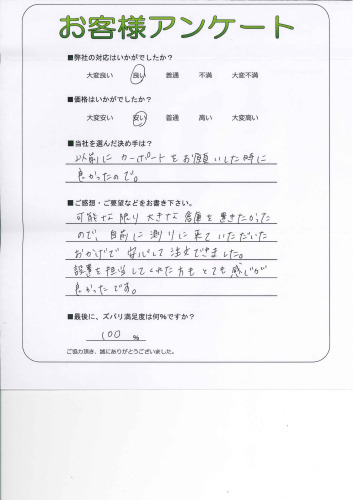 お客様アンケート
■弊社の対応はいかがでしたか？
大変良い 良い 普通 不満 大変不満
■価格はいかがでしたか？
大変安い 安い 普通 高い 大変高い
■当社を選んだ決め手は？
以前にカーポートをお願いした時に
良かったので。
■ご感想・ご要望などをお書き下さい。
可能な限り大きな倉庫を置きたかった
ので、自前に測りに来ていただいた
おかげで安心して注文できました。
設置を担当してくれた方もとても感じが
良かったです。
■最後に、ズバリ満足度は何％ですか？
100 %
ご協力頂き、誠にありがとうございました。